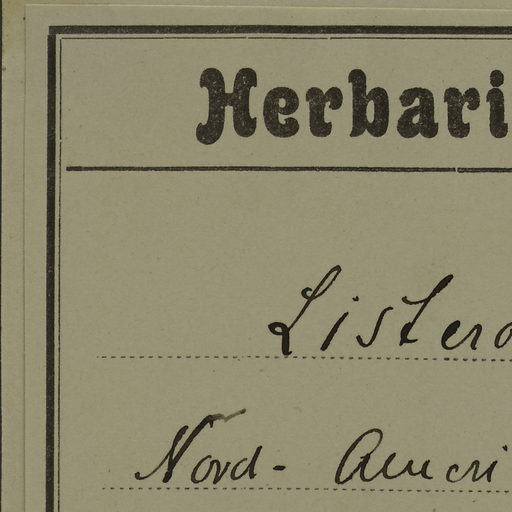 Herbari
Listero
Nord-Ameri